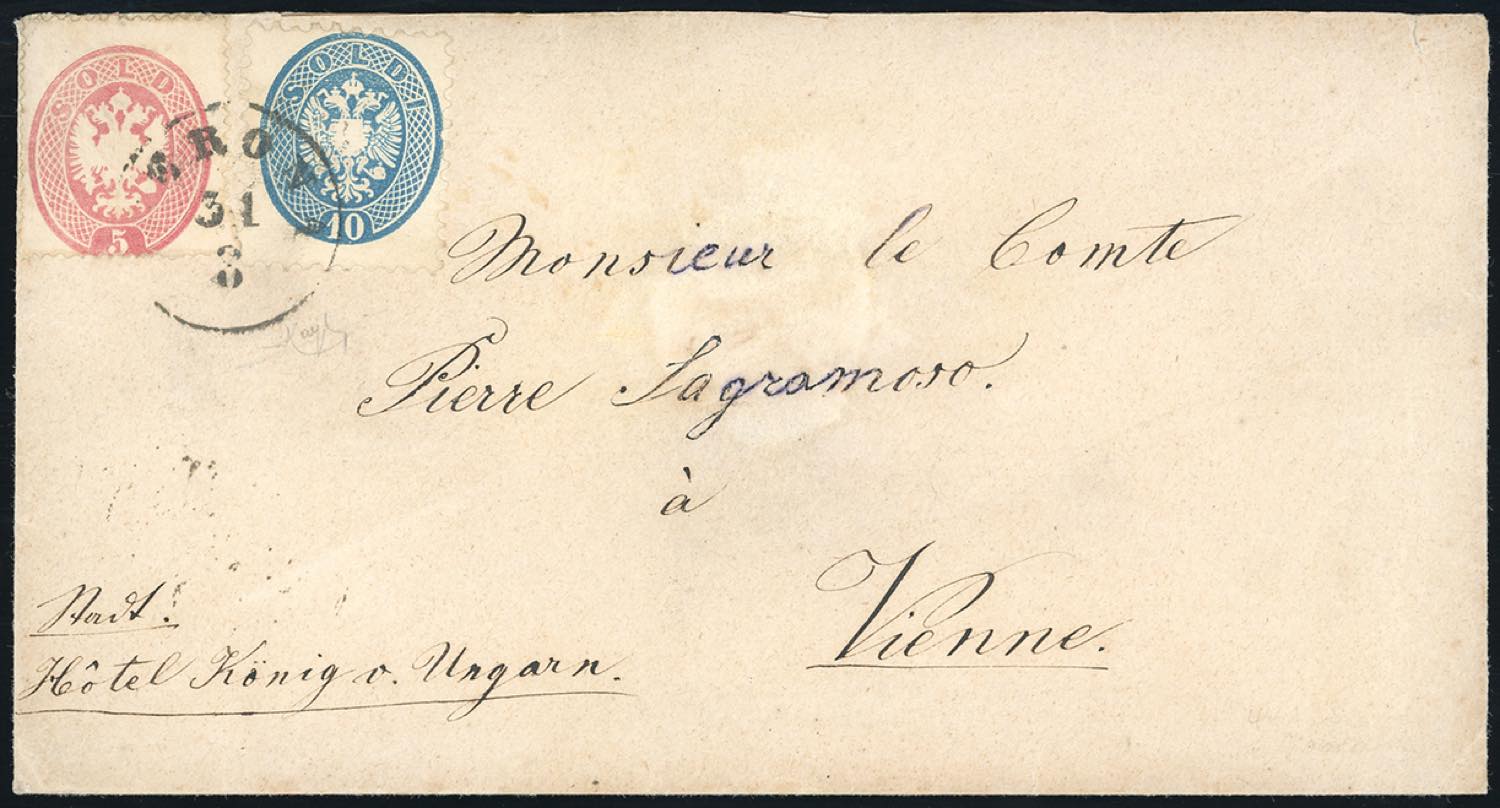 SOLDI
5
SOLDI
10
31
8
Monsieur le Comte
Pierre Sagramoso.
à
Vienne.
Stadt.
Hôtel König v. Ungarn.